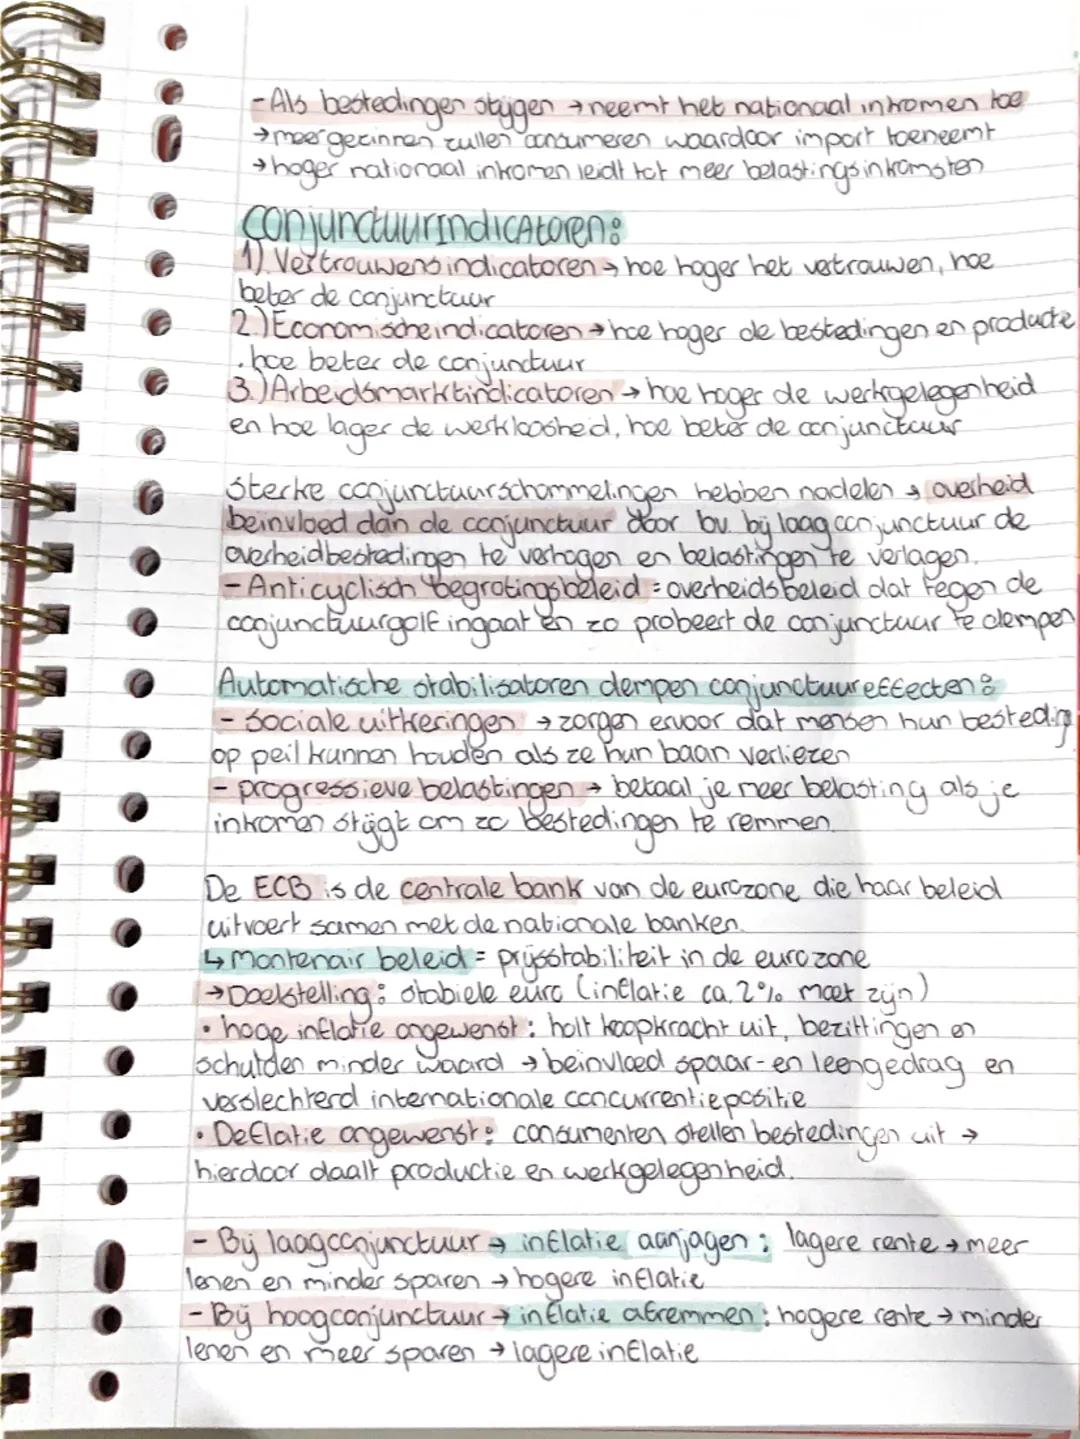 - Als bestedingen stijgen → neemt het nationaal inkomen toe
→ meer gezinnen zullen consumeren waardoor import toeneemt
→ hoger nationaal inkomen leidt tot meer belastingsinkomsten
Conjunctuurindicatoren:
1) Vertrouwensindicatoren → hoe hoger het vertrouwen, hoe
beter de conjunctuur
2.) Economische indicatoren → hoe hoger de bestedingen en productie
hoe beter de conjunctuur
3.) Arbeidsmarktindicatoren → hoe hoger de werkgelegenheid
en hoe lager de werkloosheid, hoe beter de conjunctuur
Sterke conjunctuurschommelingen hebben nadelen → overheid
beinvloed dan de conjunctuur door bv. bij laagconjunctuur de
overheidbestedingen te verhogen en belastingen te verlagen.
- Anticyclisch begrotingsbeleid = overheidsbeleid dat tegen de
conjunctuurgolf ingaat en zo probeert de conjunctuur te dempen
Automatische stabilisatoren dempen conjunctuureffecten:
- Sociale uitkeringen → zorgen ervoor dat mensen hun besteding
op peil kunnen houden als ze hun baan verliezen
- progressieve belastingen → betaal je meer belasting als je
inkomen stijgt om zo bestedingen te remmen.
De ECB is de centrale bank van de eurozone die haar beleid
uitvoert samen met de nationale banken.
↳ Montenair beleid = prijsstabiliteit in de eurozone
→ Doelstelling: stabiele euro (inflatie ca. 2% moet zijn)
• hoge inflatie ongewenst: holt koopkracht uit, bezittingen en
schulden minder waard → beinvloed spaar- en leengedrag en
verslechterd internationale concurrentiepositie
• Deflatie ongewenst: consumenten stellen bestedingen uit →
hierdoor daalt productie en werkgelegenheid.
- Bij laagconjunctuur → inflatie aanjagen: lagere rente → meer
lenen en minder sparen → hogere inflatie
- Bij hoogconjunctuur → inflatie afremmen: hogere rente → minder
lenen en meer sparen → lagere inflatie